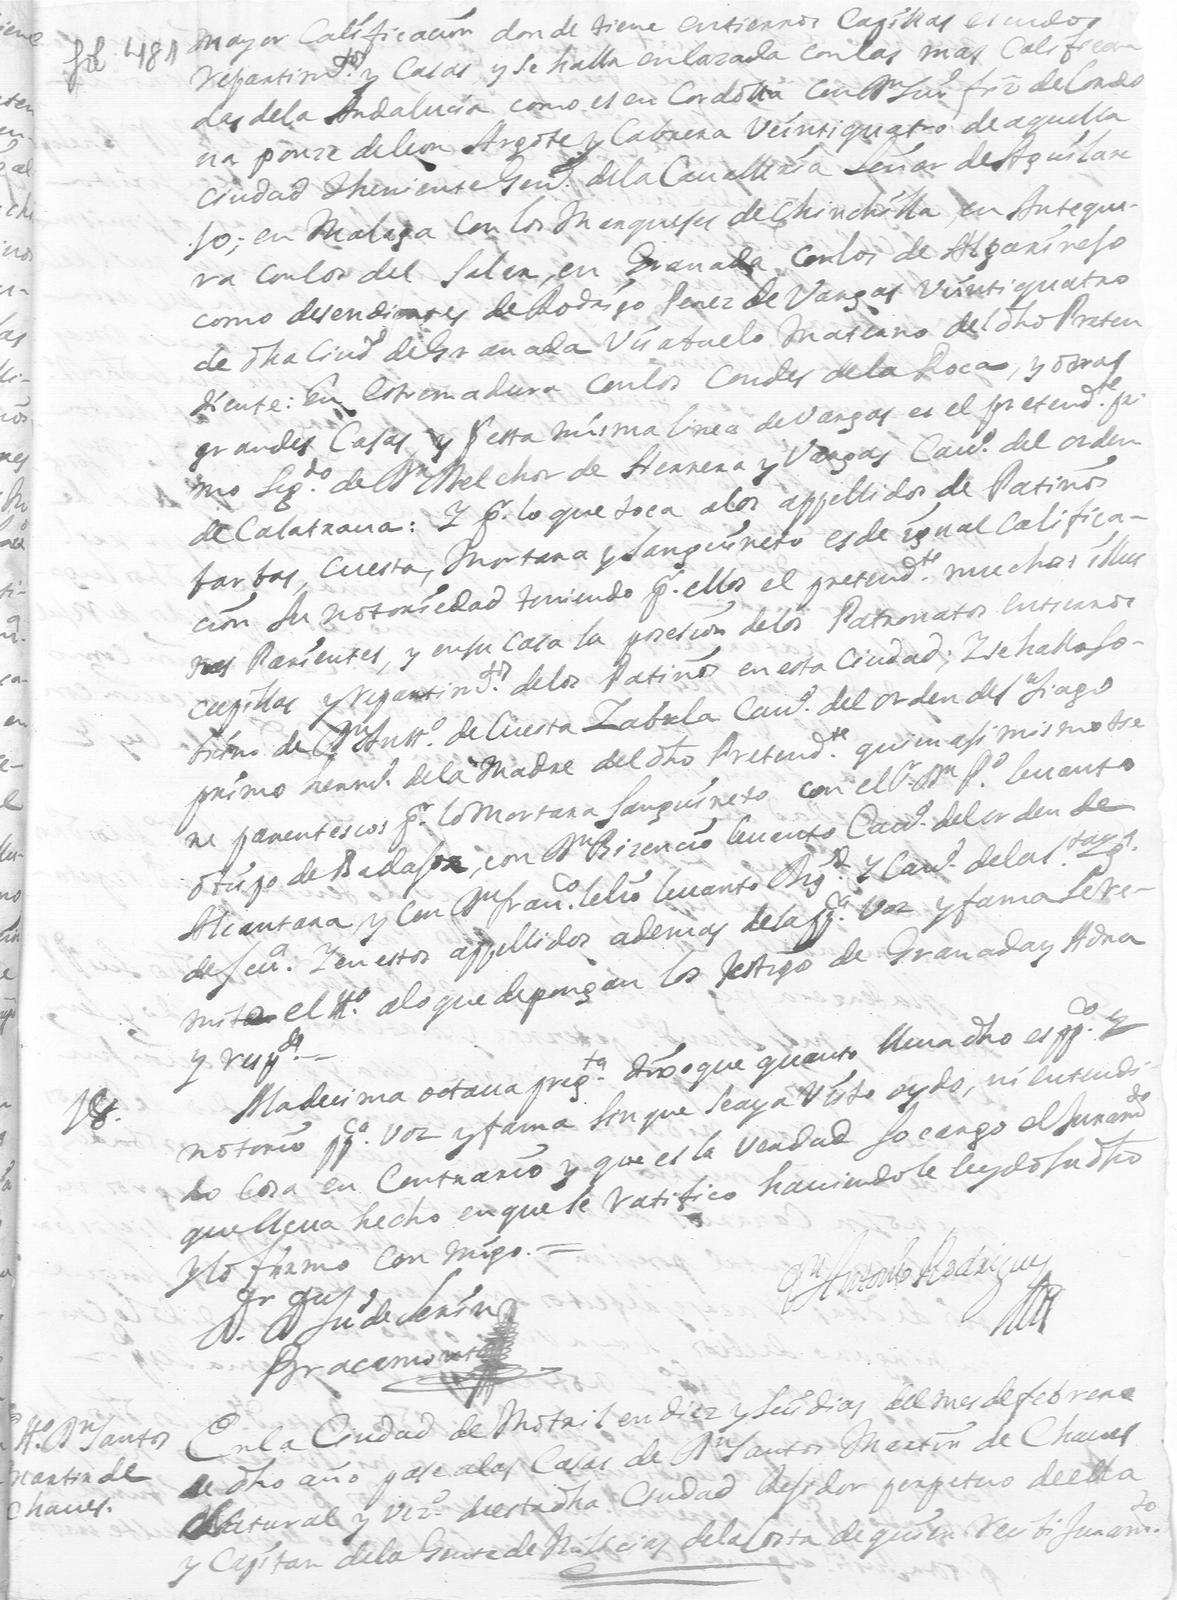 fol 481
mayor Calificacion donde tiene entierros Capillas escudos
repartim.tos y Casas y se halla enlazada con las mas Calificca
das dela Andalucia como es en Cordova con Dn Luis frz de Cordo
va ponze de leon Argote y Cabrera Veintiquatro de aquella
Ciudad Theniente Gen.l dela Cavalleria Señor de Aguilare
jo; en Malaga con los Marqueses de Chinchilla, en Anteque-
ra con los del Salar, en Granada con los de Algarinejo
como desendientes de Rodrigo Perez de Vargas Veintiquatro
de dha Ciud de Granada Visabuelo Materno del dho Preten
diente: En estremadura con los Condes dela Roca, y otras
grandes Casas y desta misma linea de Vargas es el pretend.te pri
mo seg.do de Dn Melchor de Herrera y Vargas Cavo. del orden
de Calatraua: Y pr. lo que toca alos appellidos de Patiños
farfas, Cuesta, Mortara y Sanguineto es de igual Califica-
cion su notoriedad teniendo pr. ellos el pretend.te muchos illus
tres Parientes, y en su Casa la posesion delos Patronatos entierros
capillas y repartim.tos delos Patiños en esta Ciudad; Y se halla so-
brino de Dn Antt.o de Cuesta Zabala Cavo. del orden de Sn Tiago
primo herm.o dela Madre del dho Pretend.te quien asi mismo tie
ne parentescos pr. lo Mortara Sanguineto con el Sr. Dn P.o leuanto
otispo de Badajoz, con Dn Bizencio leuanto Cavo. del orden de
Alcantara y con Dn fran.co lelio leuanto Brig.r y Cavo. delas
de Seu.a Y en estos appellidos ademas dela pp.ca voz y fama se re-
mite el tt.o alo que depongan los testigo de Granada y Adra
y resp.de
18. Ala decima octaua preg.ta dixo que quanto lleua dho es pp.co y
notorio pp.ca voz y fama sin que se aya visto oydo, ni entendi
do Cosa en Contrario y que es la verdad so cargo el Juram.to
que lleua hecho en que se ratifico haviendole leydo su dho
y lo firmo con migo.
Dn Antonio Rodriguez
Dn Ju.o de
Bracamonte
tt.o Dn Santos
Martin de
Chaues.
En la Ciudad de Motril en diez y seis dias del mes de febrero
de dho año pase alas Casas de Dn Santos Martin de Chaues
Natural y vez.o desta dha Ciudad Residor perpetuo de ella
y Capitan dela Gente de Milicias dela Costa de quien recibi Juram.to